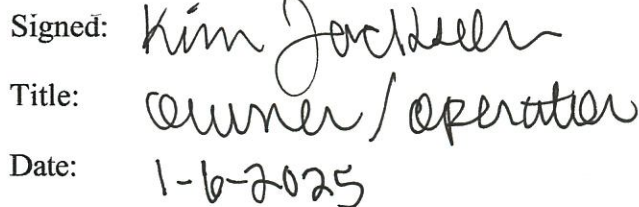 Signed: Kim Jackson
Title: owner/operator
Date: 1-6-2025